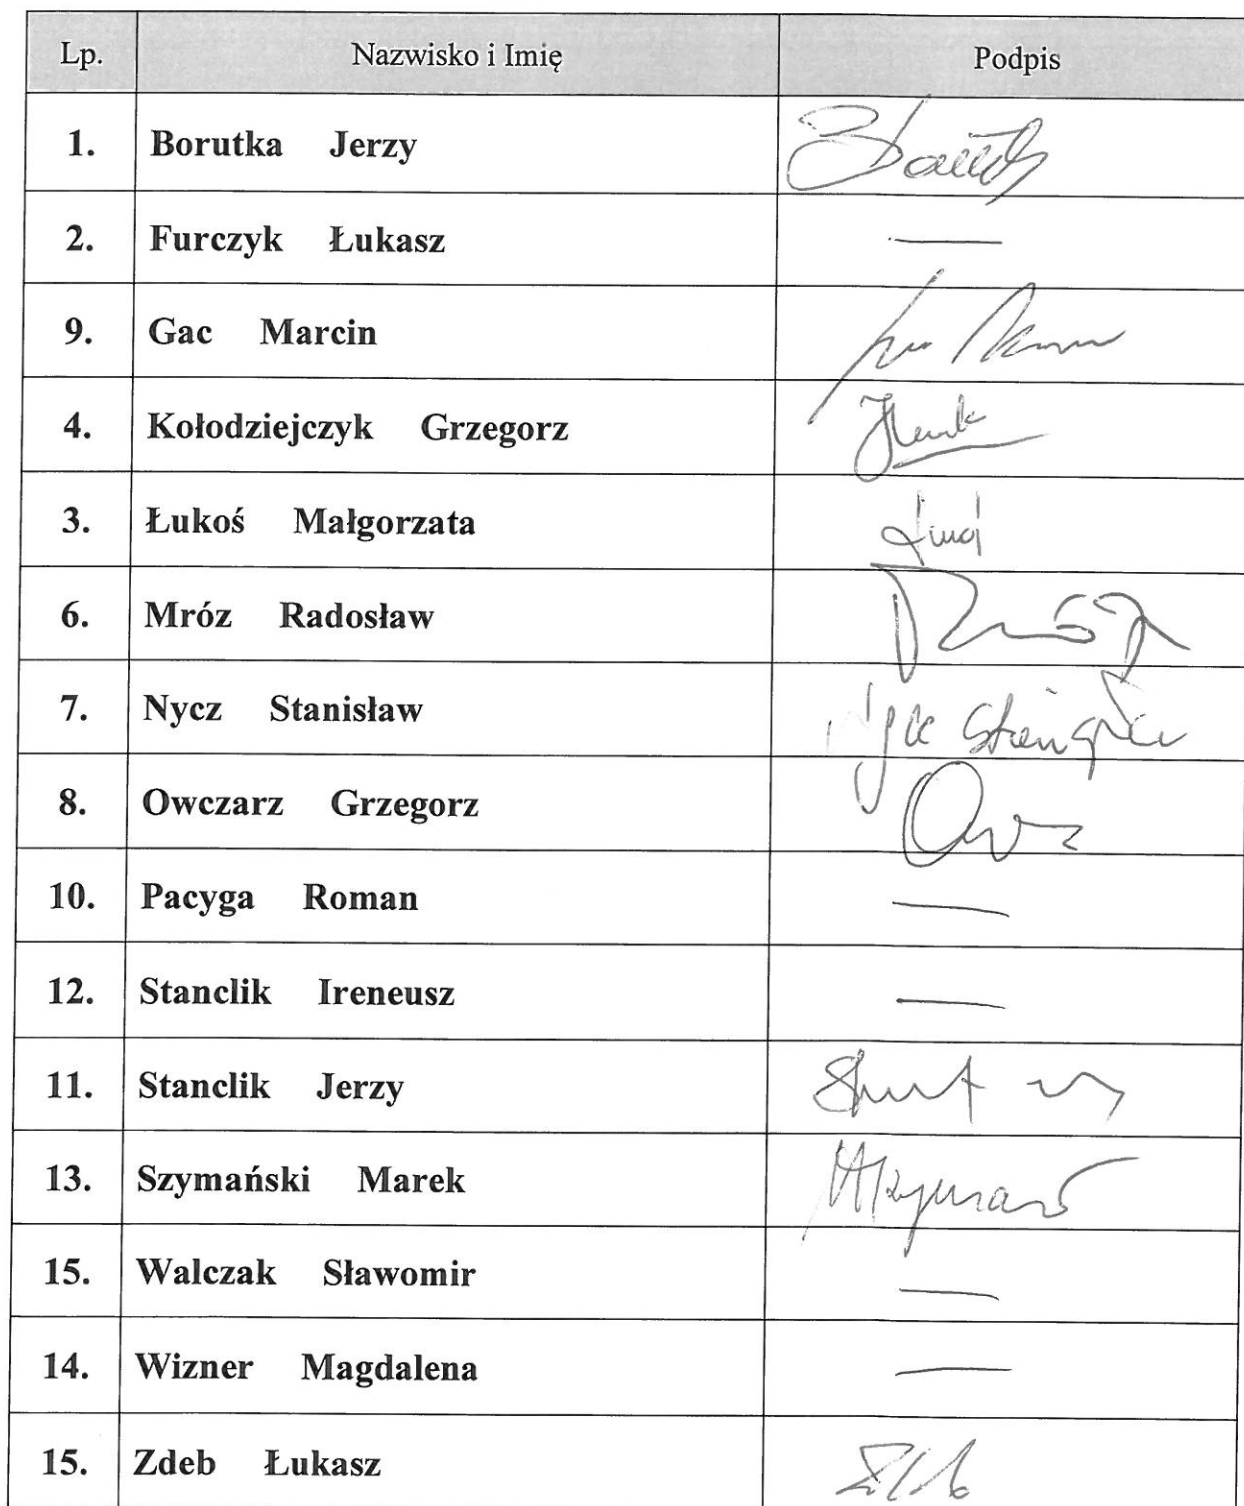 Lp. Nazwisko i Imię Podpis
1. Borutka Jerzy
2. Furczyk Łukasz —
9. Gac Marcin
4. Kołodziejczyk Grzegorz
3. Łukoś Małgorzata
6. Mróz Radosław
7. Nycz Stanisław
8. Owczarz Grzegorz
10. Pacyga Roman —
12. Stanclik Ireneusz —
11. Stanclik Jerzy
13. Szymański Marek
15. Walczak Sławomir —
14. Wizner Magdalena —
15. Zdeb Łukasz